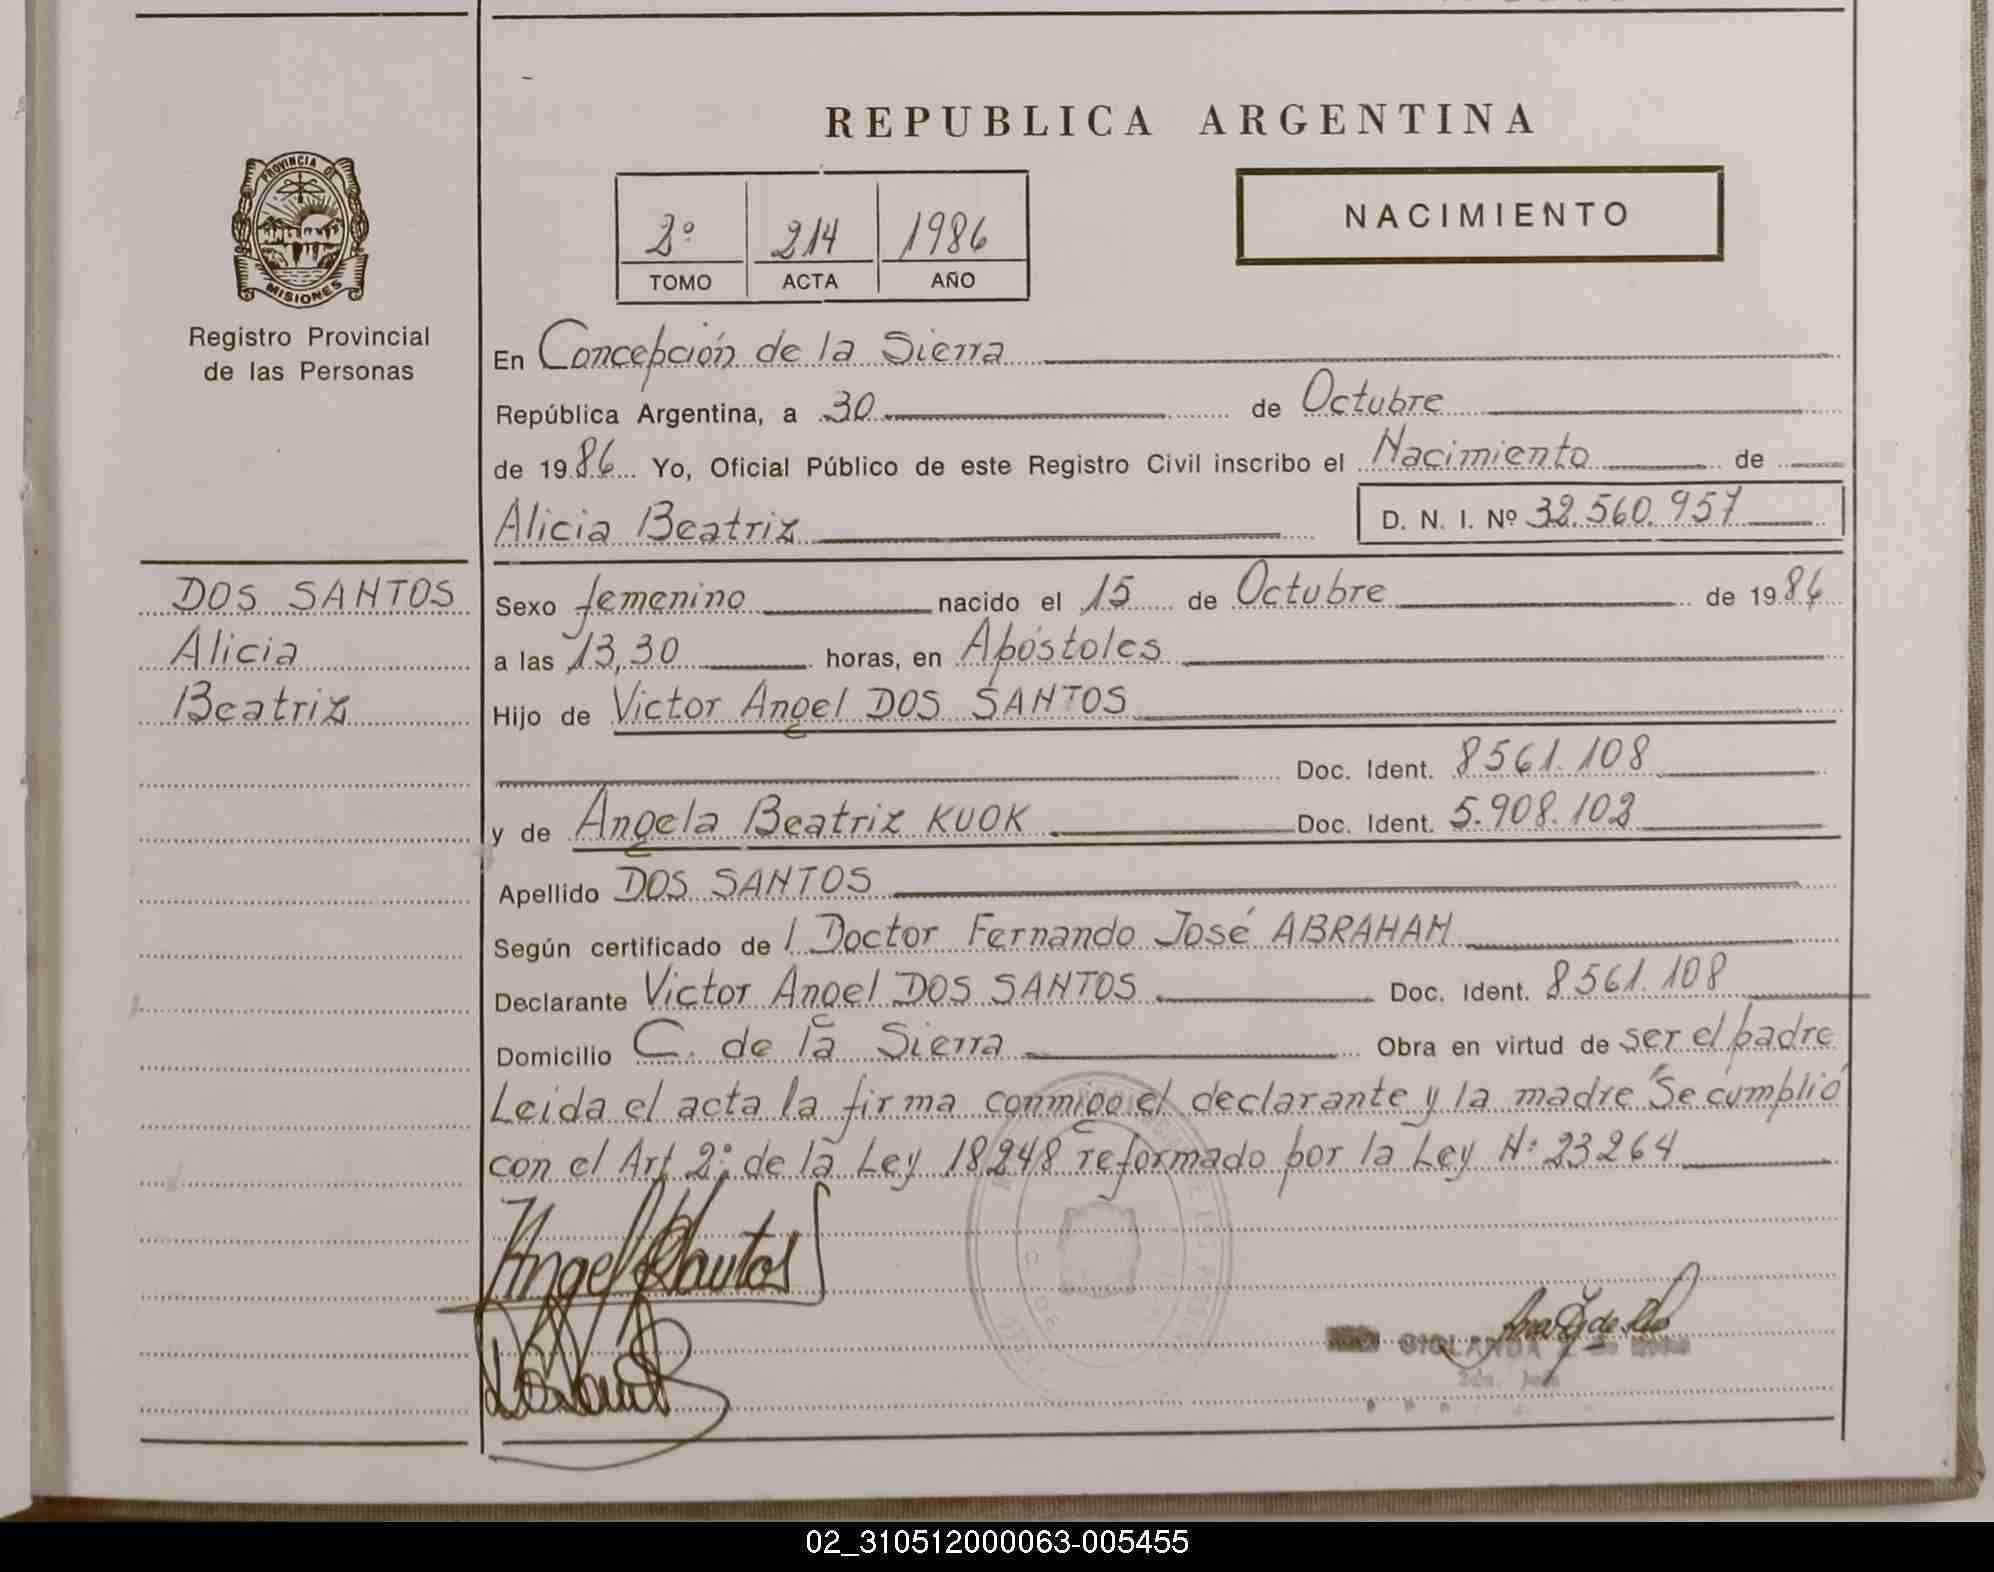 REPUBLICA ARGENTINA
PROVINCIA DE
MISIONES
Registro Provincial
de las Personas
2º 214 1986
TOMO ACTA AÑO
NACIMIENTO
En Concepción de la Sierra
República Argentina, a 30 de Octubre
de 1986 Yo, Oficial Público de este Registro Civil inscribo el Nacimiento de
Alicia Beatriz D. N. I. Nº 32.560.957
DOS SANTOS
Alicia
Beatriz
Sexo femenino nacido el 15 de Octubre de 1986
a las 13,30 horas, en Apóstoles
Hijo de Victor Angel DOS SANTOS
Doc. Ident. 8561.108
y de Angela Beatriz KUOK Doc. Ident. 5.908.102
Apellido DOS SANTOS
Según certificado de l Doctor Fernando José ABRAHAM
Declarante Victor Angel DOS SANTOS Doc. Ident. 8561.108
Domicilio C. de la Sierra Obra en virtud de ser el padre
Leida el acta la firma conmigo el declarante y la madre "Se cumplió"
con el Art 2º de la Ley 18248 reformado por la Ley Nº 23264
Angel DSantos
02_310512000063-005455